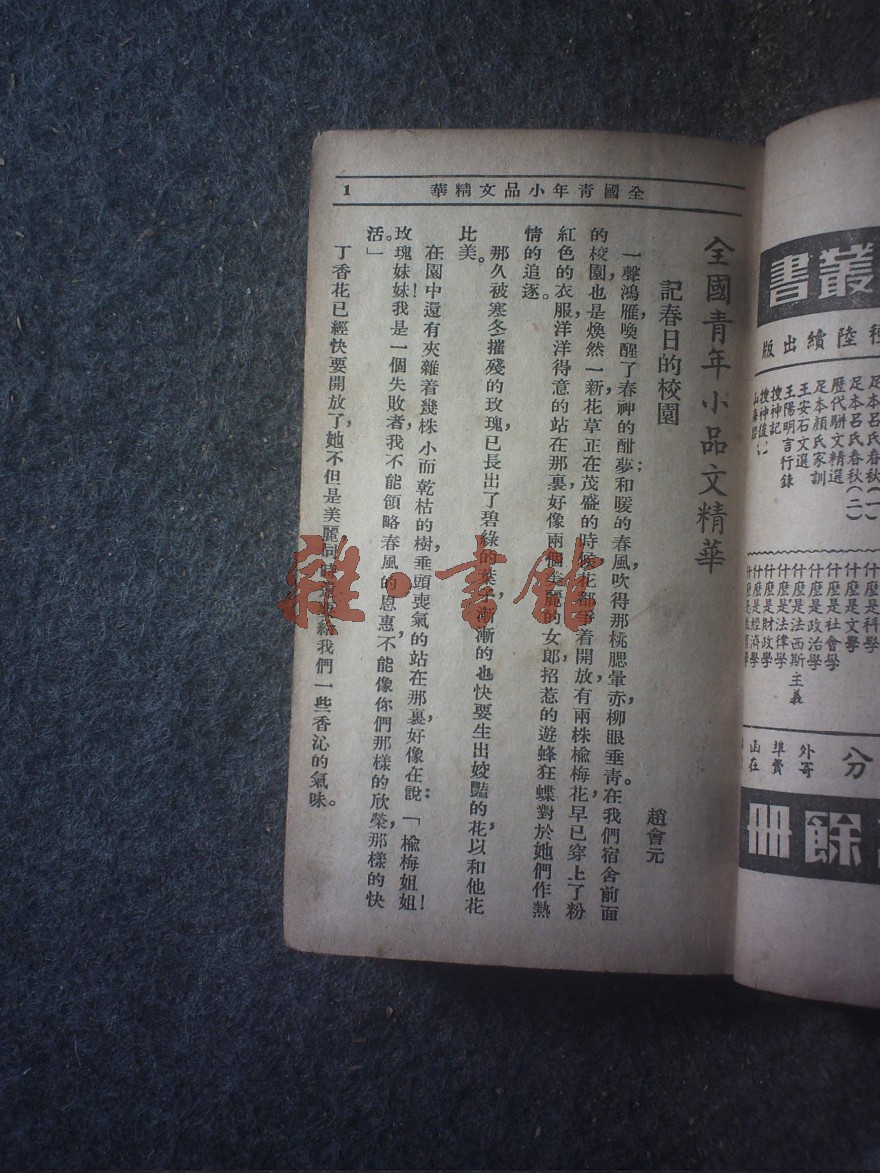 叢書
種陸續出版
足本呂氏春秋(一)
足本呂氏春秋(二)
歷代駢文精選
足本顏氏家訓
王安石文選
王陽明言行錄
搜神記
搜神後
什麼是科學
什麼是文學
什麼是社會學
什麼是政治學
什麼是法西斯主義
什麼是法律學
什麼是財政學
什麼是經濟學
分
外埠
寄費
在
餘冊
全國青年小品文精華
1
全國青年小品文精華
記春日的校園
趙會元
一聲鴻雁,喚醒了春神的酣夢;和暖的春風,吹得那桃腮暈赤,柳眼垂青。在我們宿舍前面
的校園,也是煥然一新,花草正在茂盛的時候,花都爭着開放,有兩株楡梅花,早已穿上了粉
紅色的衣服,洋洋得意的站在那裏,好像兩個美麗的女郎,招惹的遊蜂狂蝶,對於她們作熱
情的追逐。
那久被寒冬摧殘的玫瑰,已長出了碧綠的葉子,漸漸的也快要生出姣豔的花,以和他花
比美。
在園中還有夾雜着幾株小而乾枯的樹,垂頭喪氣的站在那裏,好像在說:「楡梅姐姐!
玫瑰妹妹!我是一個失敗者,我不能領略春風的恩惠,不能像你們那樣的欣榮,那樣的快
活。」
丁香花已經快要開放了,她不但是美麗,同時給我們一些香沁的氣味。
雜·書館